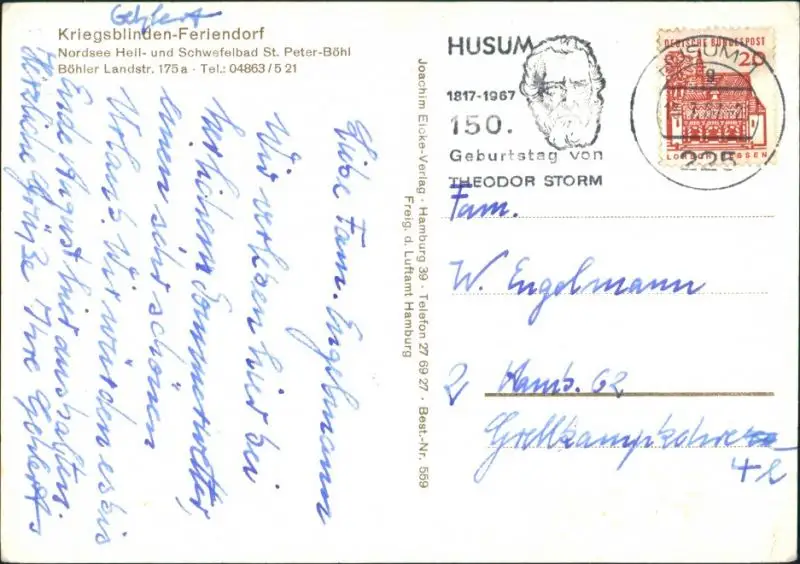 Gehlert
Kriegsblinden-Feriendorf
Nordsee Heil- und Schwefelbad St. Peter-Böhl
Böhler Landstr. 175a · Tel.: 04863/5 21
Liebe Fam. Engelmann
Wir verleben hier bei
herrlichem Sommerwetter,
einen sehr schönen
Urlaub. Wir würden es bis
Ende August hier aushalten.
Herzliche Grüße Ihre Gehlerts
Joachim Eicke-Verlag · Hamburg 39 · Telefon 27 69 27 · Best.-Nr. 559
Freig. d. Luftamt Hamburg
HUSUM
1817-1967
150.
Geburtstag von
THEODOR STORM
DEUTSCHE BUNDESPOST
20
HUSUM
225
Fam.
W. Engelmann
2 Hamb. 62